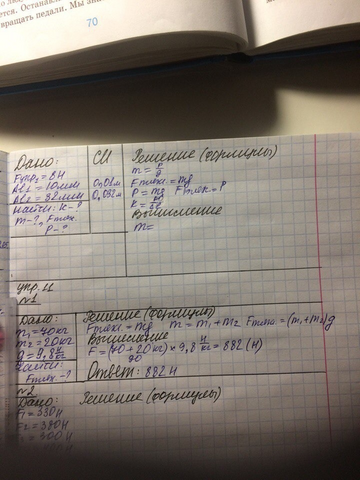 ется. Останавл
вращать педали. Мы зна
70
Дано:
Fупр₁ = 8Н
Δl₁ = 10мм
Δl₂ = 32мм
Найти: k-?
m-?, Fтяж.
P-?
СИ
0,01м
0,032м
Решение (формулы)
Fтяж. = mg
P = mg Fтяж = P
Вычисление
m =
упр. 11
№1
Дано:
m₁ = 70кг
m₂ = 20кг
g = 9,8 Н/кг
Найти:
Fтяж.-?
Решение (формулы)
Fтяж. = mg m = m₁ + m₂ Fтяж. = (m₁ + m₂)g
Вычисление
F = (70 + 20 кг) × 9,8 Н/кг = 882 (Н)
90
Ответ: 882 Н
№2
Дано:
F₁ = 330Н
F₂ = 380Н
Решение (формулы)